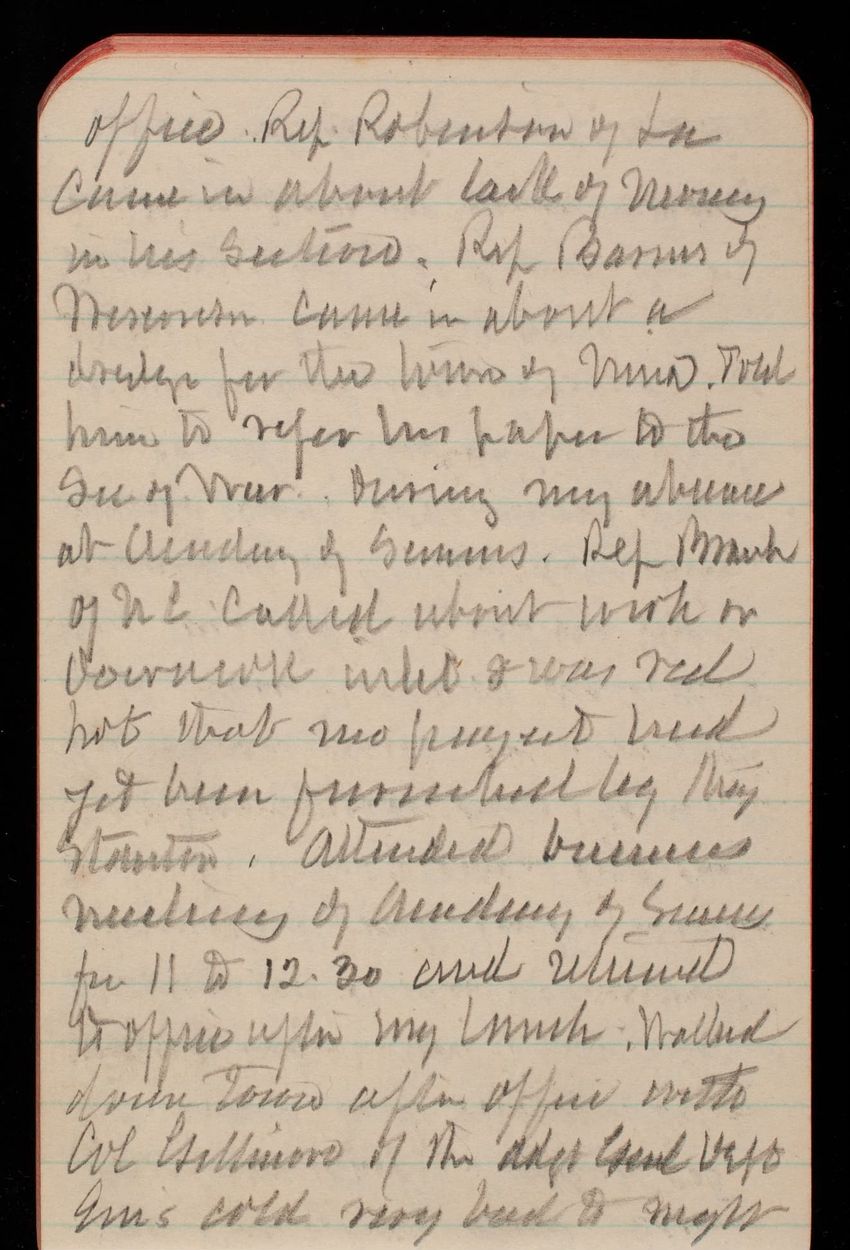 office. Rep. Robinson of La
came in about lack of money
in his section. Rep Barnes of
Wisconsin came in about a
dredge for the town of. Told
him to refer his paper to the
Sec of War. During my absence
at Academy of Sciences. Rep Branch
of N C called about work on
inlet & was red
hot that no project had
yet been furnished by
Stanton. Attended business
meeting of Academy of Sciences
from 11 to 12.30 and returned
to office after my lunch. Walked
down town after office with
Col of the Adjt Genl Dept
cold very bad to night